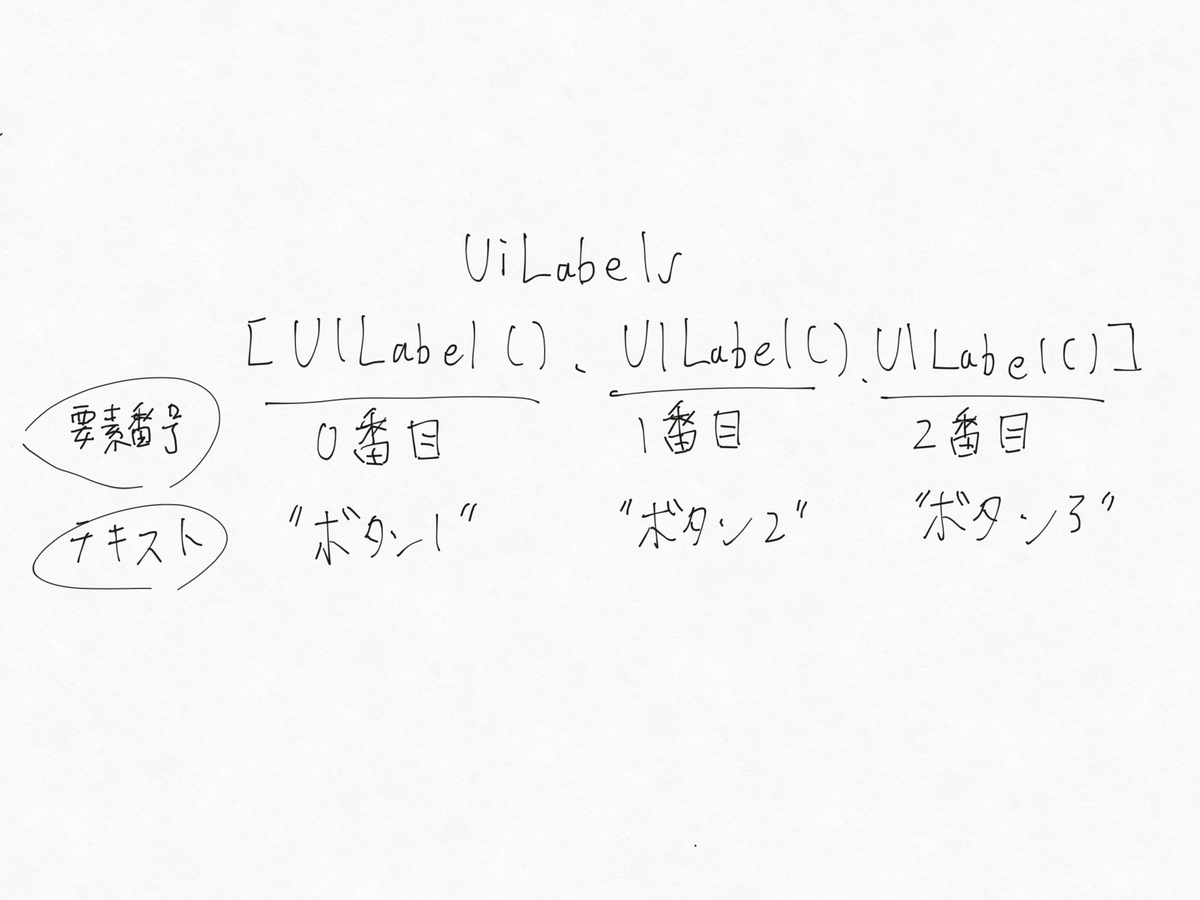 UiLabels
[UILabel()、UILabel()、UILabel()]
要素番号 0番目 1番目 2番目
テキスト "ボタン1" "ボタン2" "ボタン3"